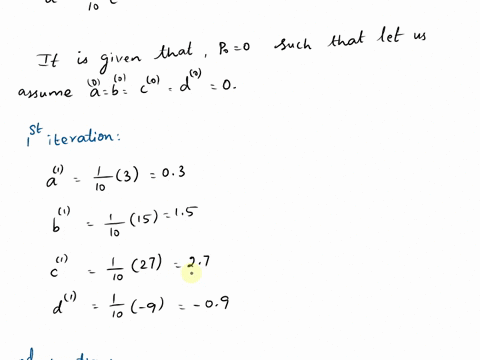 It is given that, P₀ = 0 such that let us
assume a⁽⁰⁾ = b⁽⁰⁾ = c⁽⁰⁾ = d⁽⁰⁾ = 0.
1ˢᵗ iteration:
a⁽¹⁾ = 1/10 (3) = 0.3
b⁽¹⁾ = 1/10 (15) = 1.5
c⁽¹⁾ = 1/10 (27) = 2.7
d⁽¹⁾ = 1/10 (-9) = -0.9